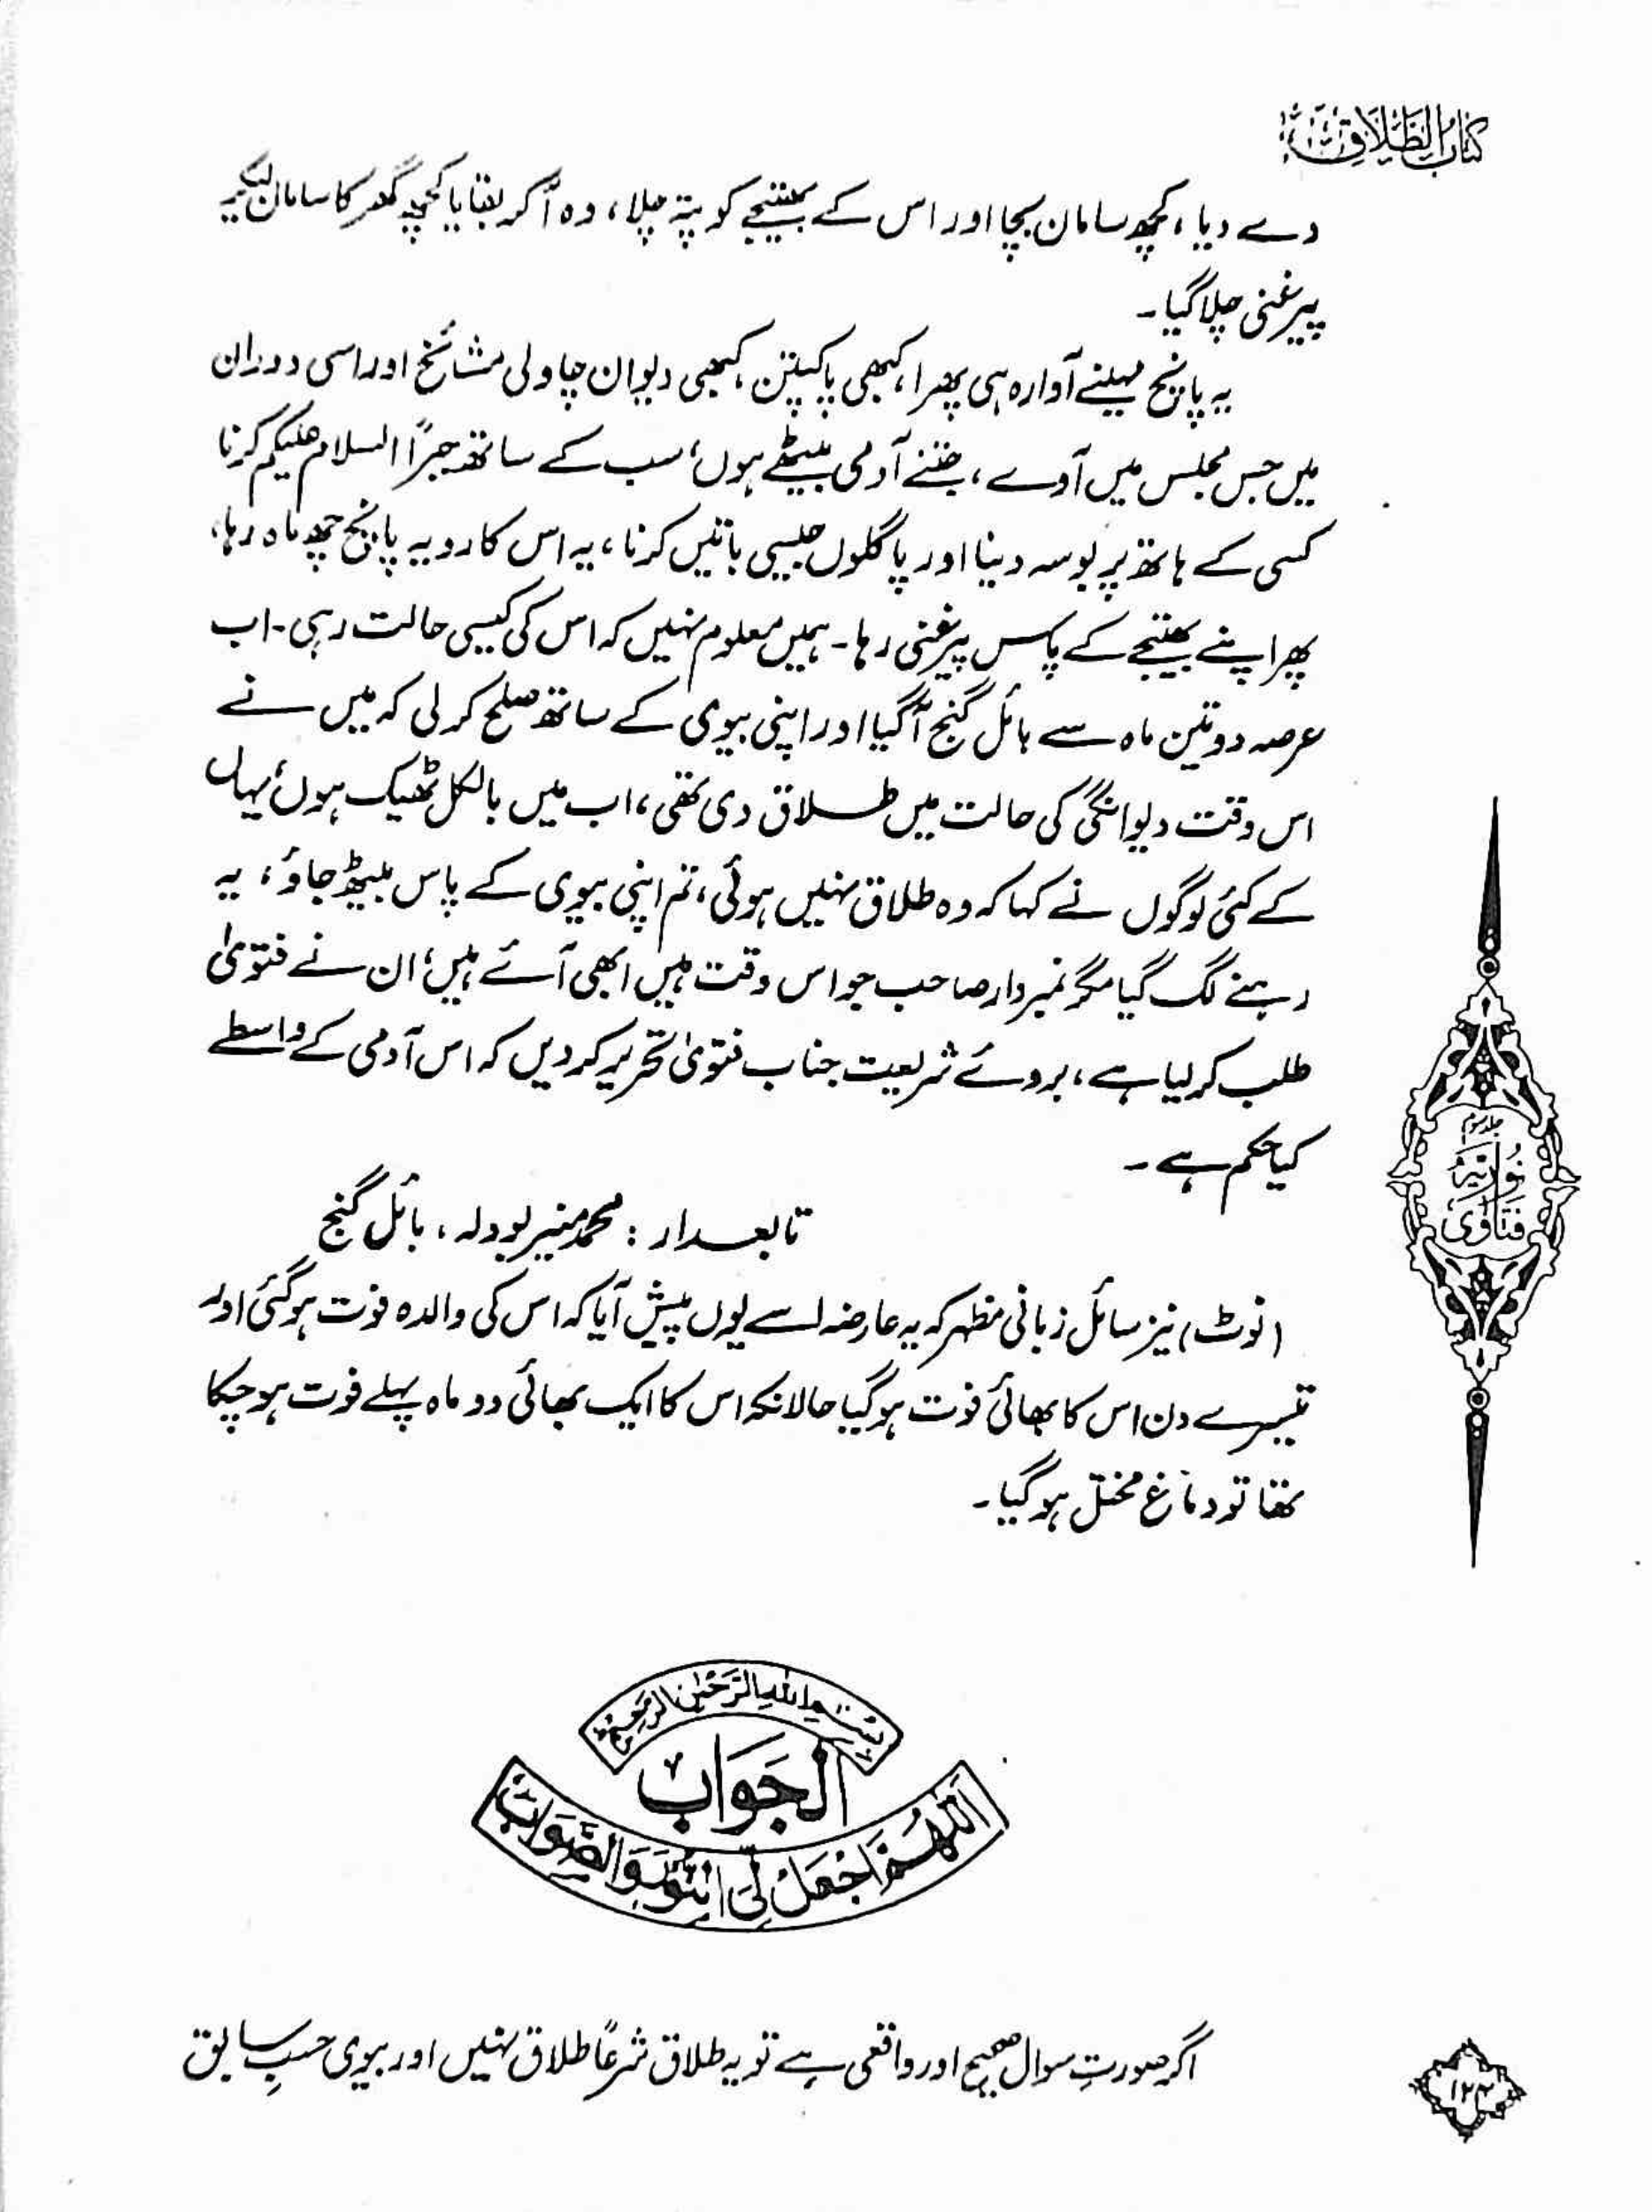 کتاب الطلاق
دے دیا، کچھ سامان بچا اور اس کے بھتیجے کو پتہ چلا، وہ آ کر بقایا کچھ گھر کا سامان لیکر
پیرغنی چلا گیا۔
یہ پانچ مہینے آوارہ ہی پھرا، کبھی پاکپتن، کبھی دیوان چاولی مشائخ اور اسی دوران
میں جس مجلس میں آوے، جتنے آدمی بیٹھے ہوں، سب کے ساتھ جبرًا السلام علیکم کرنا
کسی کے ہاتھ پر بوسہ دینا اور پاگلوں جیسی باتیں کرنا، یہ اس کا رویہ پانچ چھ ماہ رہا،
پھر اپنے بھتیجے کے پاس پیرغنی رہا۔ ہمیں معلوم نہیں کہ اس کی کیسی حالت رہی۔ اب
عرصہ دو تین ماہ سے بائل گنج آ گیا اور اپنی بیوی کے ساتھ صلح کر لی کہ میں نے
اس وقت دیوانگی کی حالت میں طلاق دی تھی، اب میں بالکل ٹھیک ہوں، یہاں
کے کئی لوگوں نے کہا کہ وہ طلاق نہیں ہوئی، تم اپنی بیوی کے پاس بیٹھ جاؤ، یہ
رہنے لگ گیا مگر نمبردار صاحب جو اس وقت ہیں ابھی آئے ہیں، ان نے فتویٰ
طلب کر لیا ہے، بروئے شریعت جناب فتویٰ تحریر کر دیں کہ اس آدمی کے واسطے
کیا حکم ہے۔
تابعدار : محمد منیر لودلہ، بائل گنج
(نوٹ) نیز سائل زبانی مظہر کہ یہ عارضہ اسے یوں پیش آیا کہ اس کی والدہ فوت ہو گئی اور
تیسرے دن اس کا بھائی فوت ہو گیا حالانکہ اس کا ایک بھائی دو ماہ پہلے فوت ہو چکا
تھا تو دماغ مختل ہو گیا۔
جلد سوم
نوریہ
فتاویٰ
بِسْمِ اللهِ الرَّحْمٰنِ الرَّحِيْمِ
الجَوَاب
اَللّٰهُمَّ اجْعَلْ لِیَ النُّوْرَ وَالصَّوَابَ
اگر صورتِ سوال صحیح اور واقعی ہے تو یہ طلاق شرعًا طلاق نہیں اور بیوی حسبِ سابق